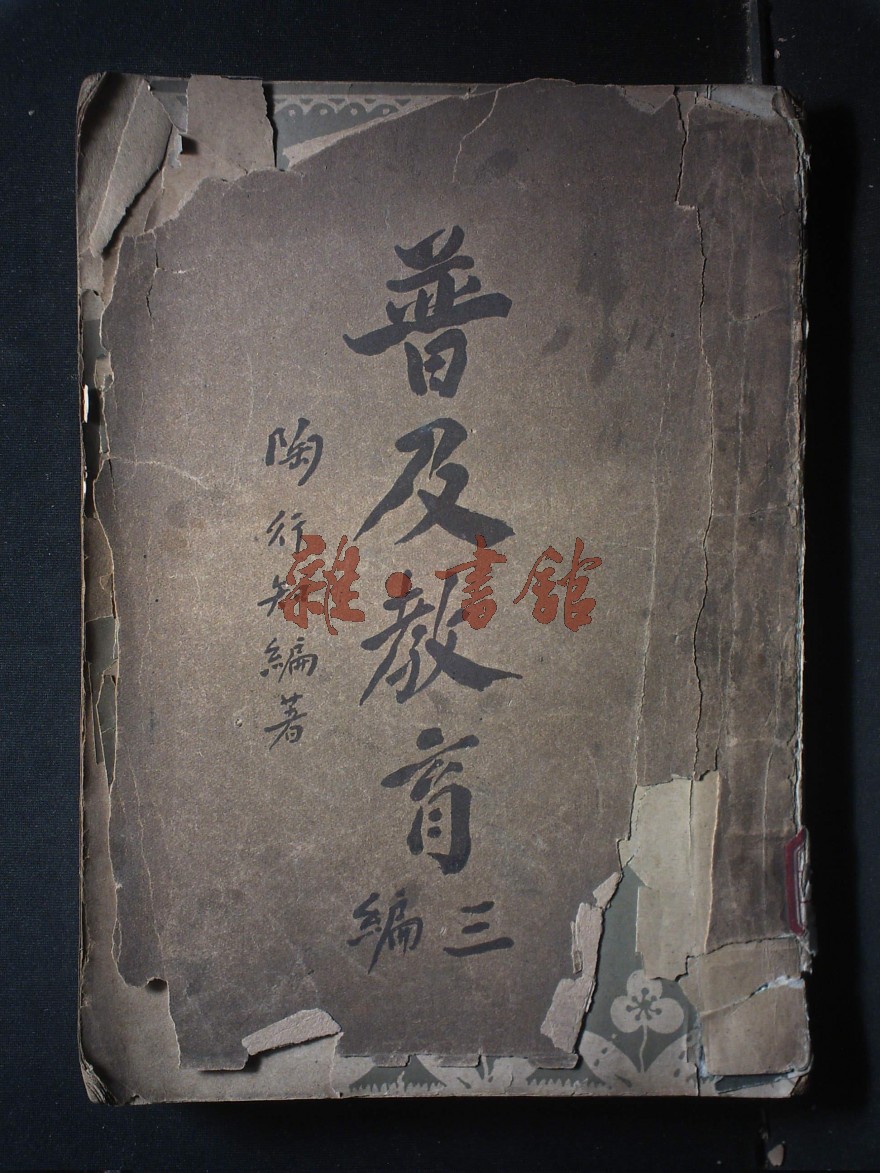 普及教育
三編
陶行知編著
雜·書館